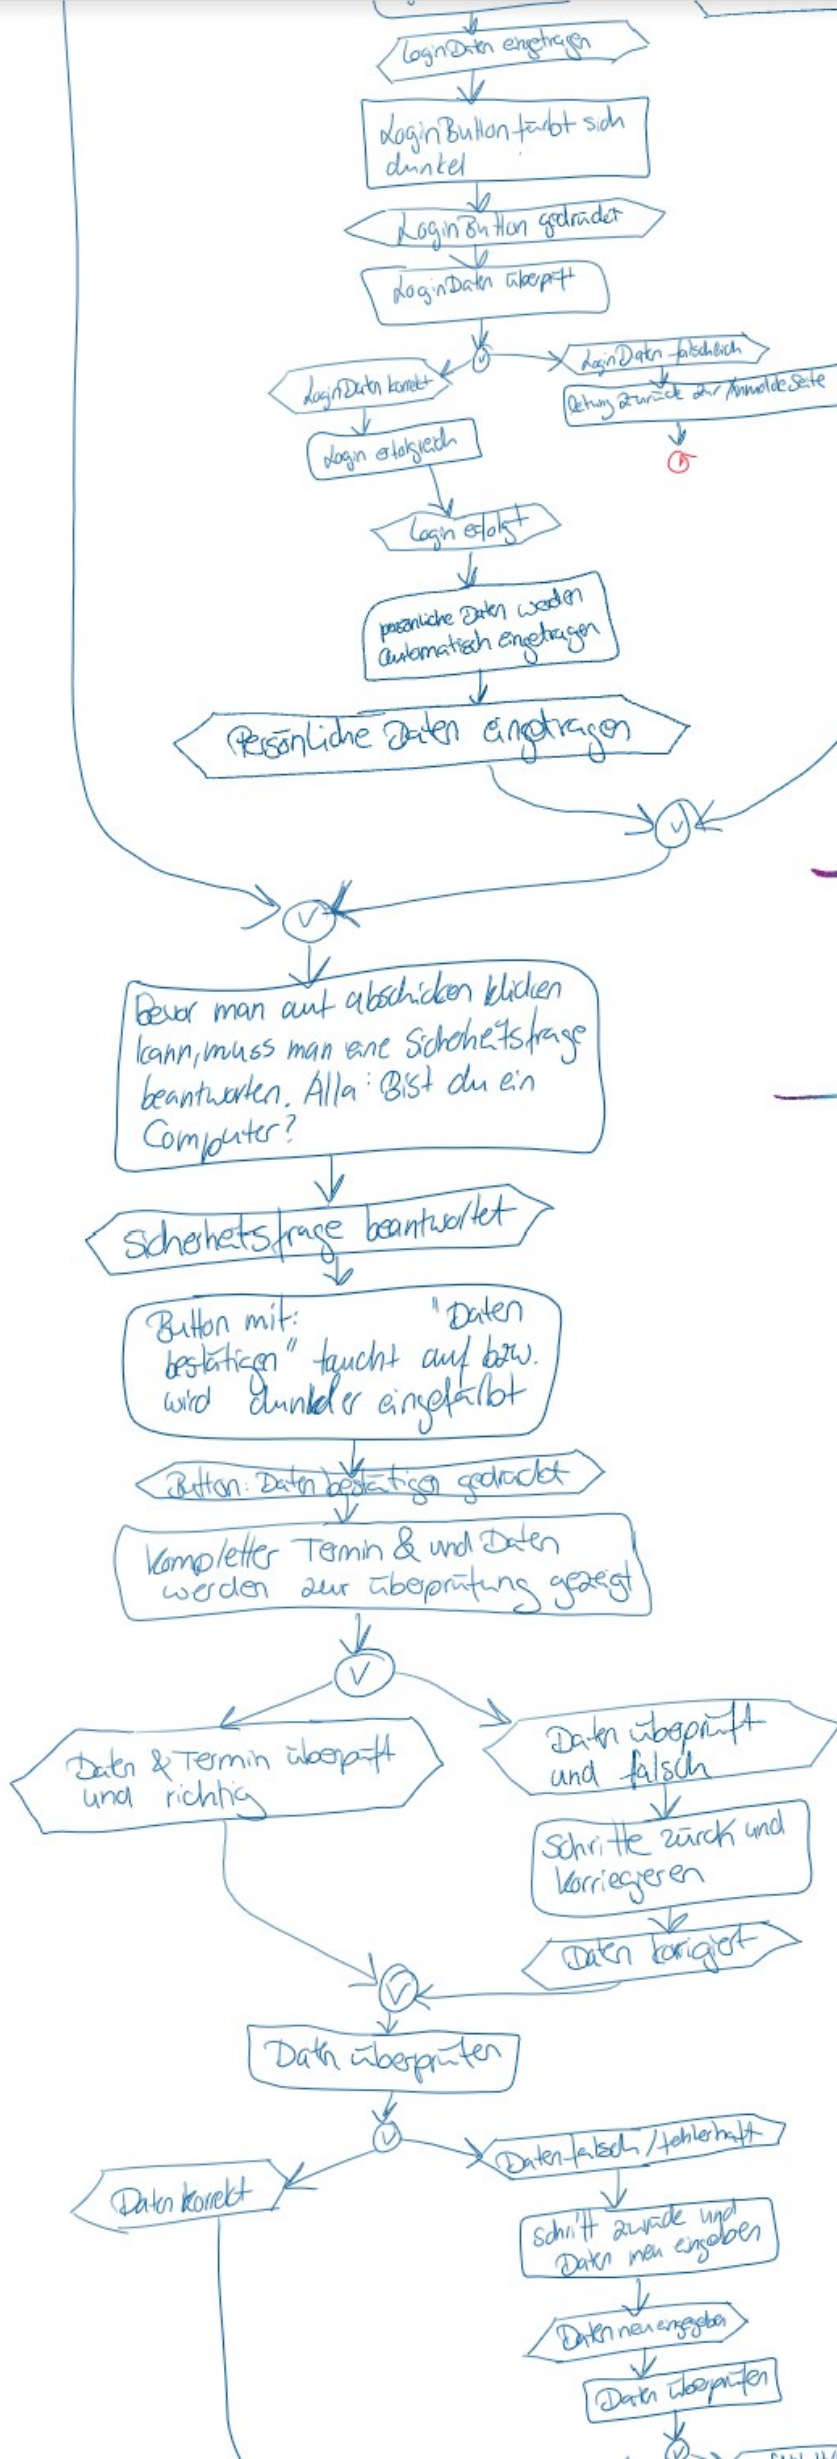 LoginDaten eingetragen
LoginButton färbt sich
dunkel
LoginButton gedrückt
LoginDaten überprüft
V
LoginDaten falsch
LoginDaten korrekt
zurück zur AnmeldeSeite
Login erfolgreich
Login erfolgt
persönliche Daten werden
automatisch eingetragen
Persönliche Daten eingetragen
V
V
Bevor man auf abschicken klicken
kann, muss man eine Sicherheitsfrage
beantworten. Alla: Bist du ein
Computer?
Sicherheitsfrage beantwortet
Button mit: "Daten
bestätigen" taucht auf bzw.
wird dunkler eingefärbt
Button: Daten bestätigen gedrückt
Kompletter Termin & und Daten
werden zur überprüfung gezeigt
V
Daten & Termin überprüft
und richtig
Daten überprüft
und falsch
Schritte zürck und
Korriegieren
Daten korigiert
V
Daten überprüfen
V
Daten falsch / fehlerhaft
Daten korrekt
Schritt zurück und
Daten neu eingeben
Daten neu eingegeben
Daten überprüfen
V